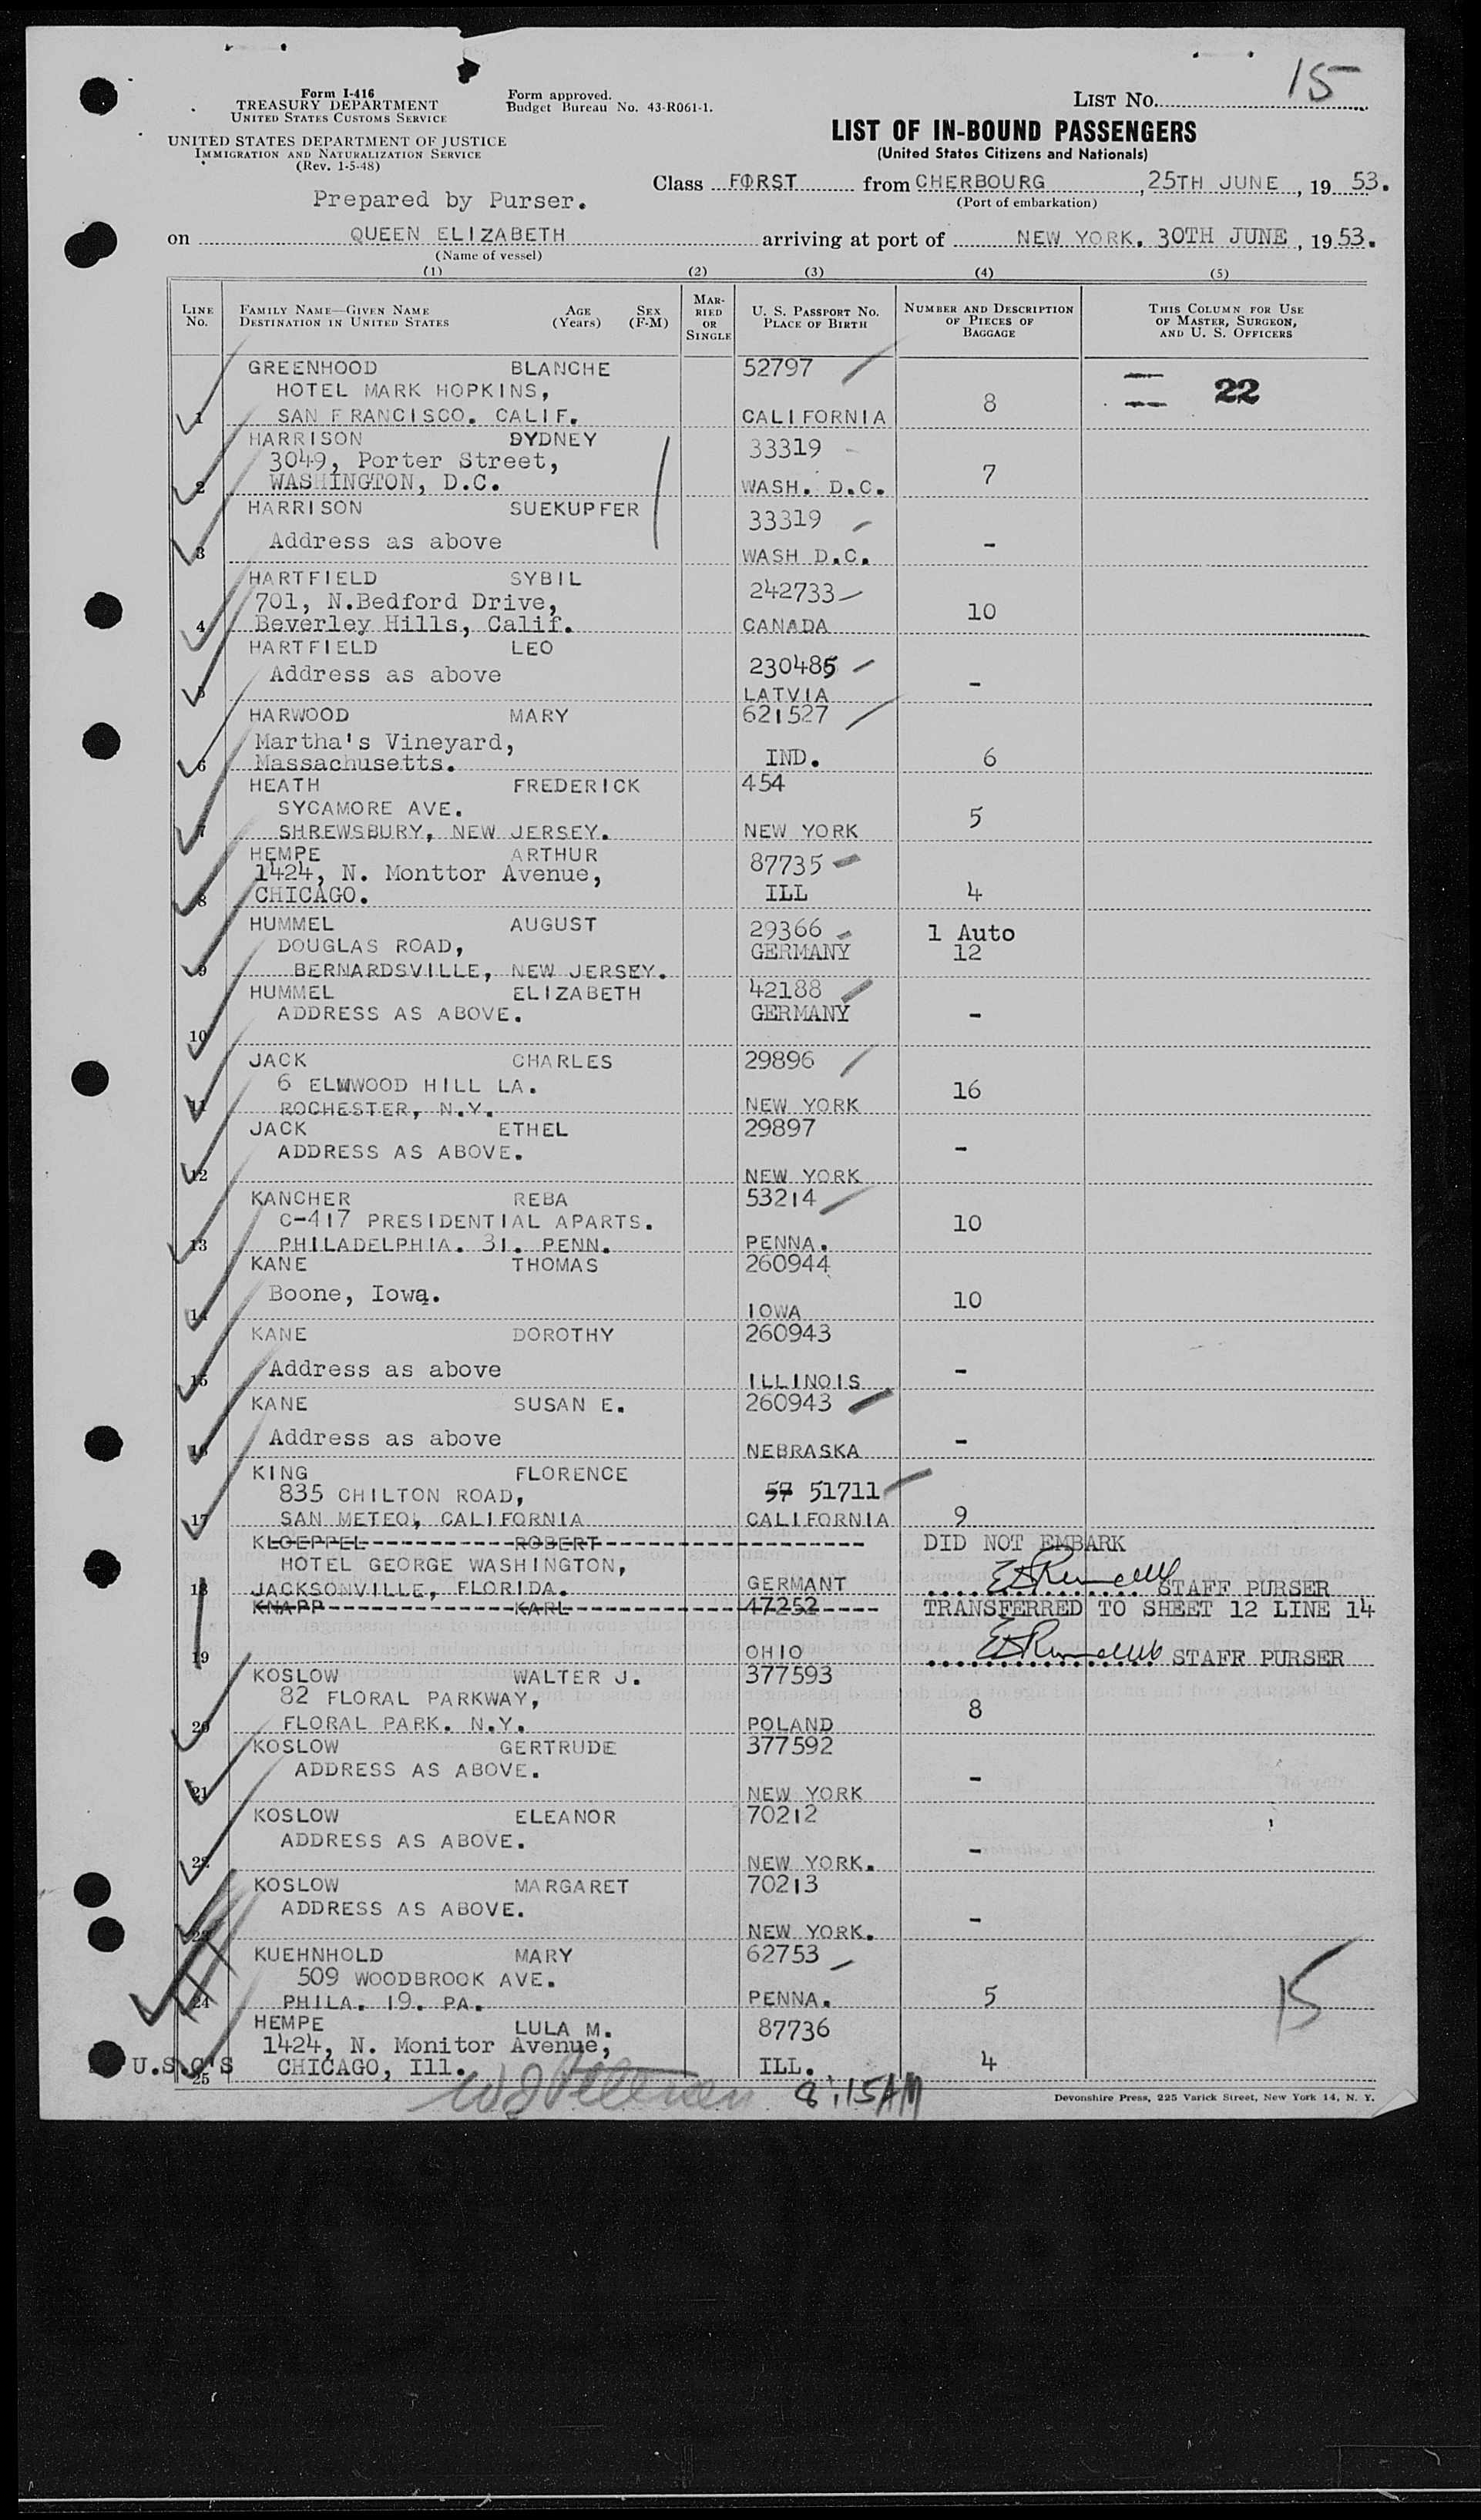 15
Form I-416
TREASURY DEPARTMENT
UNITED STATES CUSTOMS SERVICE
UNITED STATES DEPARTMENT OF JUSTICE
IMMIGRATION AND NATURALIZATION SERVICE
(Rev. 1-5-48)
Form approved.
Budget Bureau No. 43-R061-1.
LIST NO.
LIST OF IN-BOUND PASSENGERS
(United States Citizens and Nationals)
Prepared by Purser.
Class FORST from CHERBOURG, 25TH JUNE, 19 53.
(Port of embarkation)
on QUEEN ELIZABETH arriving at port of NEW YORK. 30TH JUNE, 19 53.
(Name of vessel)
(1) (2) (3) (4) (5)
LINE NO. FAMILY NAME—GIVEN NAME DESTINATION IN UNITED STATES AGE (Years) SEX (F-M) MARRIED OR SINGLE U. S. PASSPORT NO. PLACE OF BIRTH NUMBER AND DESCRIPTION OF PIECES OF BAGGAGE THIS COLUMN FOR USE OF MASTER, SURGEON, AND U. S. OFFICERS
GREENHOOD BLANCHE 52797
HOTEL MARK HOPKINS, 8 22
1 SAN FRANCISCO. CALIF. CALIFORNIA
HARRISON SYDNEY 33319
3049, Porter Street, 7
2 WASHINGTON, D.C. WASH. D.C.
HARRISON SUEKUPFER 33319
3 Address as above WASH D.C. -
HARTFIELD SYBIL 242733
701, N.Bedford Drive, 10
4 Beverley Hills, Calif. CANADA
HARTFIELD LEO 230485
Address as above -
5 LATVIA
HARWOOD MARY 621527
Martha's Vineyard,
6 Massachusetts. IND. 6
HEATH FREDERICK 454
SYCAMORE AVE. 5
7 SHREWSBURY, NEW JERSEY. NEW YORK
HEMPE ARTHUR 87735
1424, N. Monttor Avenue,
8 CHICAGO. ILL 4
HUMMEL AUGUST 29366 1 Auto
DOUGLAS ROAD, GERMANY 12
9 BERNARDSVILLE, NEW JERSEY.
HUMMEL ELIZABETH 42188
ADDRESS AS ABOVE. GERMANY -
10
JACK CHARLES 29896
6 ELMWOOD HILL LA. 16
11 ROCHESTER, N.Y. NEW YORK
JACK ETHEL 29897
ADDRESS AS ABOVE. -
12 NEW YORK
KANCHER REBA 53214
C-417 PRESIDENTIAL APARTS. 10
13 PHILADELPHIA. 31. PENN. PENNA.
KANE THOMAS 260944
Boone, Iowa. 10
14 IOWA
KANE DOROTHY 260943
Address as above -
15 ILLINOIS
KANE SUSAN E. 260943
Address as above -
16 NEBRASKA
KING FLORENCE 57 51711
835 CHILTON ROAD,
17 SAN METEO, CALIFORNIA CALIFORNIA 9
KLOEPPEL ROBERT DID NOT EMBARK
HOTEL GEORGE WASHINGTON,
18 JACKSONVILLE, FLORIDA. GERMANT STAFF PURSER
KNAPP KARL 47252 TRANSFERRED TO SHEET 12 LINE 14
19 OHIO STAFF PURSER
KOSLOW WALTER J. 377593
82 FLORAL PARKWAY, 8
20 FLORAL PARK. N.Y. POLAND
KOSLOW GERTRUDE 377592
ADDRESS AS ABOVE. -
21 NEW YORK
KOSLOW ELEANOR 70212
ADDRESS AS ABOVE. -
22 NEW YORK.
KOSLOW MARGARET 70213
ADDRESS AS ABOVE. -
23 NEW YORK.
KUEHNHOLD MARY 62753
509 WOODBROOK AVE.
24 PHILA. 19. PA. PENNA. 5
15
HEMPE LULA M. 87736
1424, N. Monitor Avenue,
U.S.C'S 25 CHICAGO, Ill. ILL. 4
8:15AM
Devonshire Press, 225 Varick Street, New York 14, N. Y.